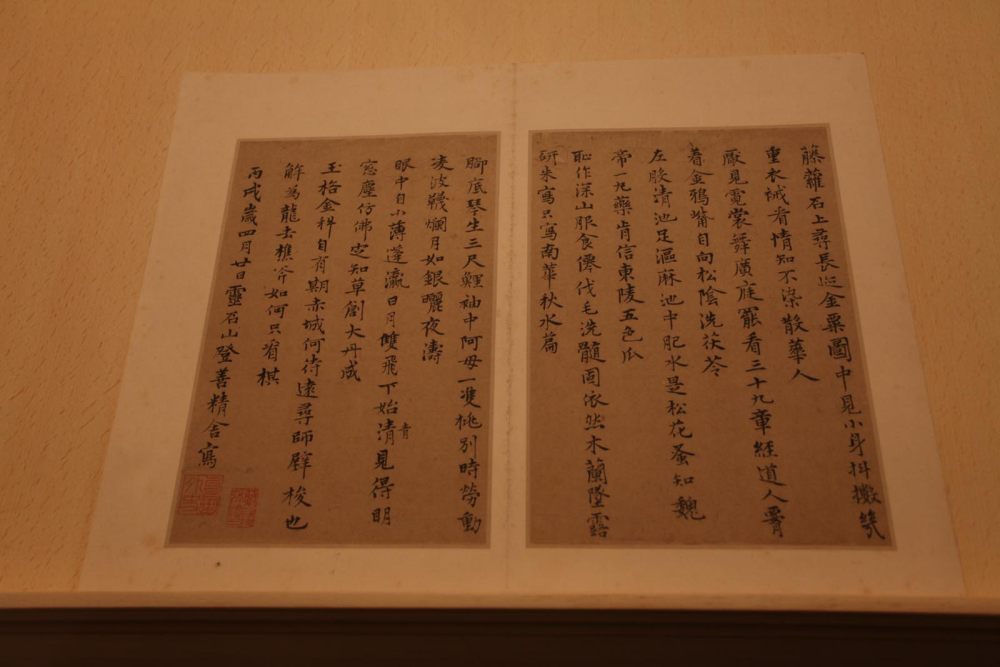 藤蘿石上尋長巡金粟圖中見小身抖擻幾
重衣祴看情知不染散華人
厭見霓裳舞廣庭罷看三十九章經道人脣
著金鴉觜自向松陰洗茯苓
左股清池足漚麻池中肥水是松花蚤知魏
帝一丸藥肯信東陵五色瓜
恥作深山服食僊伐毛洗髓固依然木蘭墜露
研朱寫只寫南華秋水篇
腳底琴生三尺鯉袖中阿母一隻桃別時勞動
凌波韤爛月如銀曬夜濤
眼中自小薄蓬瀛日月雙飛下始清見得明
青
窓塵仿佛定知草創大丹成
玉格金科自有期赤城何待遠尋師壁梭也
解為龍去樵斧如何只看棋
丙戌歲四月廿日靈石山登善精舍寫